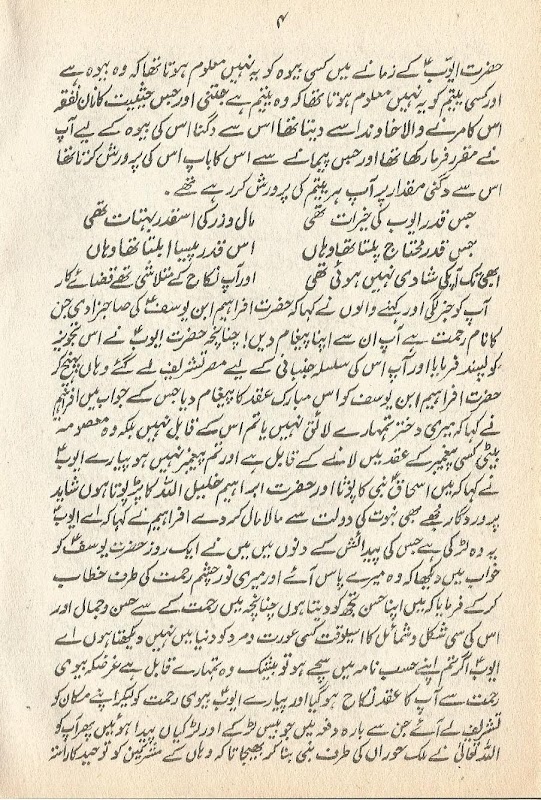 ۴
حضرت ایوبؑ کے زمانے میں کسی بیوہ کو یہ نہیں معلوم ہوتا تھا کہ وہ بیوہ ہے
اور کسی یتیم کو یہ نہیں معلوم ہوتا تھا کہ وہ یتیم ہے جتنی اور جس حیثیت کا نان نفقہ
اس کا مرنے والا خاوند اسے دیتا تھا اس سے دگنا اس کی بیوہ کے لیے آپ
نے مقرر فرما رکھا تھا اور جس پیمانے سے اس کا باپ اس کی پرورش کرتا تھا
اس سے دگنی مقدار پر آپ ہر یتیم کی پرورش کر رہے تھے۔
جس قدر ایوب کی خیرات تھی مال و زر کی اسقدر بہتات تھی
جس قدر محتاج پلتا تھا وہاں اس قدر پیسا ابلتا تھا وہاں
ابھی تک آپکی شادی نہیں ہوئی تھی اور آپ نکاح کے متلاشی تھے قضائے کار
آپ کو خبر لگی اور کہنے والوں نے کہا کہ حضرت افراہیم ابن یوسفؑ کی صاحبزادی جن
کا نام رحمت ہے آپ ان سے اپنا پیغام دیں! چنانچہ حضرت ایوبؑ نے اس تجویز
کو پسند فرمایا اور آپ اس کی سلسلہ جنبانی کے لیے مصر تشریف لے گئے وہاں پہنچ کر
حضرت افراہیم ابن یوسف کو اس مبارک عقد کا پیغام دیا جس کے جواب میں افراہیم
نے کہا کہ میری دختر تمہارے لائق نہیں یا تم اس کے قابل نہیں بلکہ وہ معصومہ
بیٹی کسی پیغمبر کے عقد میں لانے کے قابل ہے اور تم پیغمبر نہیں ہو پیارے ایوبؑ
نے کہا کہ میں اسحاق نبی کا پوتا اور حضرت ابراہیم خلیل اللہ کا پڑپوتا ہوں شاید
پروردگار مجھے بھی نبوت کی دولت سے مالا مال کر دے افراہیم نے کہا کہ اے ایوبؑ
یہ وہ لڑکی ہے جس کی پیدائش کے دنوں میں میں نے ایک روز حضرت یوسفؑ کو
خواب میں دیکھا کہ وہ میرے پاس آئے اور میری نور چشم رحمت کی طرف خطاب
کر کے فرمایا کہ میں اپنا حسن تجھ کو دیتا ہوں چنانچہ میں رحمت کے سے حسن و جمال اور
اس کی سی شکل و شمائل کا اسیلوقت کسی عورت و مرد کو دنیا میں نہیں دیکھتا ہوں اے
ایوبؑ اگر تم اپنے حسب نامہ میں سچے ہو تو بیشک وہ تمہارے قابل ہے غرضکہ بیوی
رحمت سے آپ کا عقد نکاح ہو گیا اور پیارے ایوبؑ بیوی رحمت کو لیکر اپنے مکان کو
تشریف لے آئے جن سے بارہ دفعہ میں چوبیس لڑکے اور لڑکیاں پیدا ہوئیں پھر آپ کو
اللہ تعالیٰ نے ملک حوران کی طرف نبی بنا کر بھیجا تاکہ وہاں کے مشرکین کو توحید کا راستہ